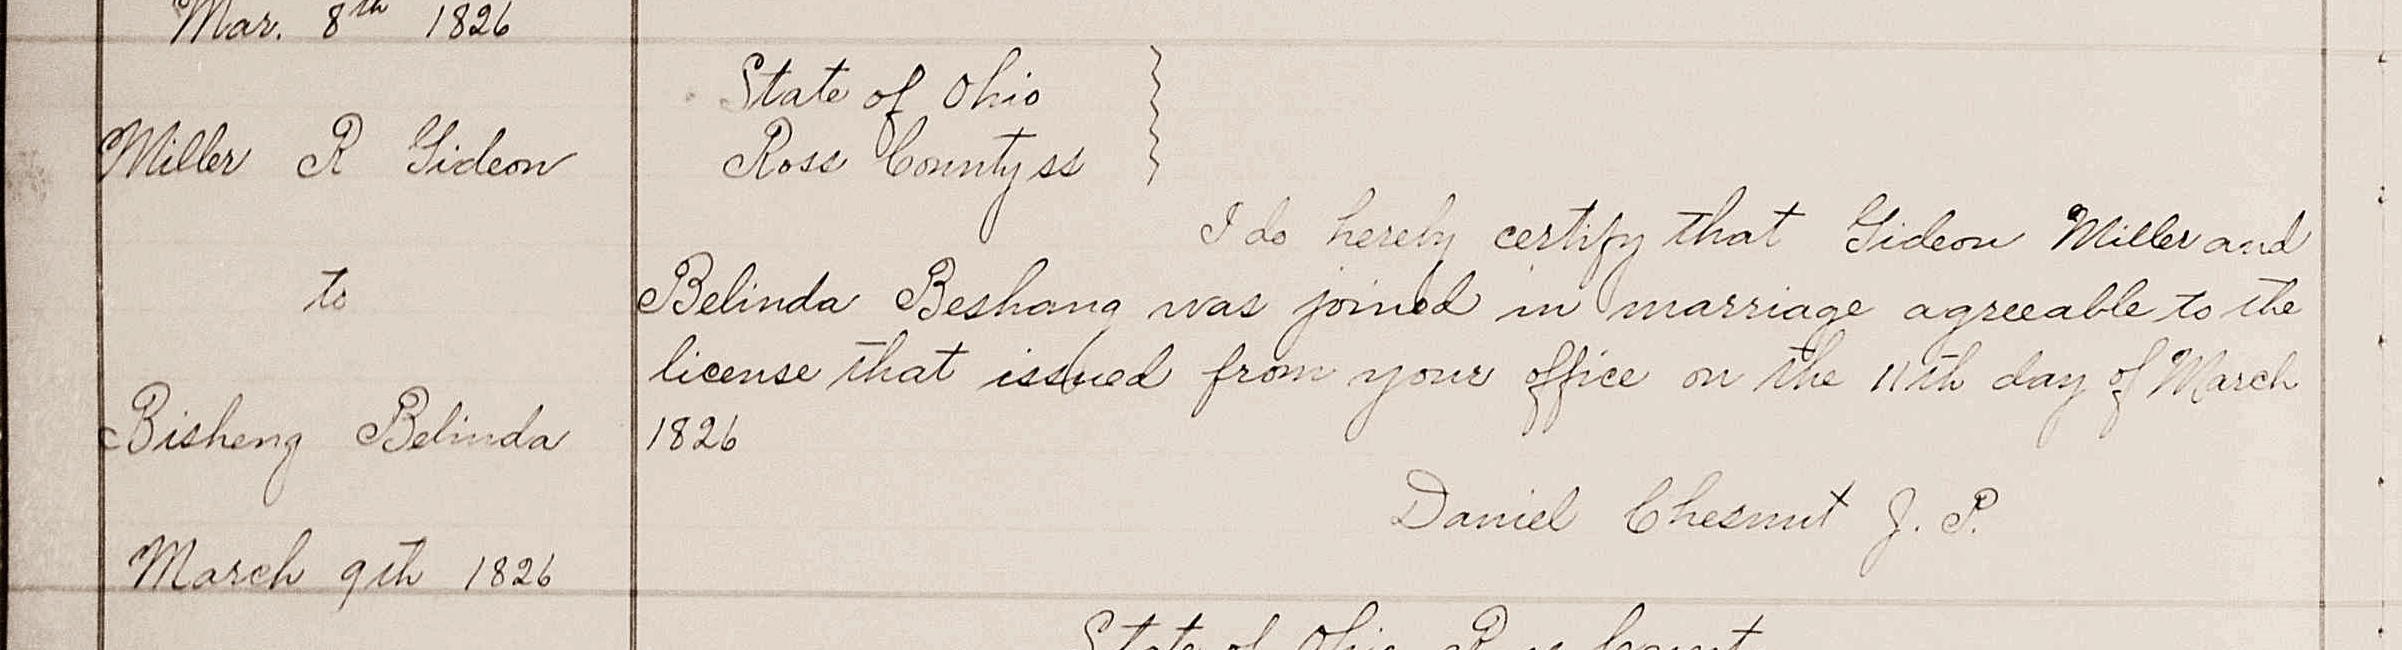 Mar. 8th 1826
State of Ohio
Ross County ss
Miller R Gideon
I do hereby certify that Gideon Miller and
to
Belinda Beshang was joined in marriage agreeable to the
license that issued from your office on the 11th day of March
Bisheng Belinda
1826
Daniel Chesnut J. P.
March 9th 1826
State of Ohio Ross Count